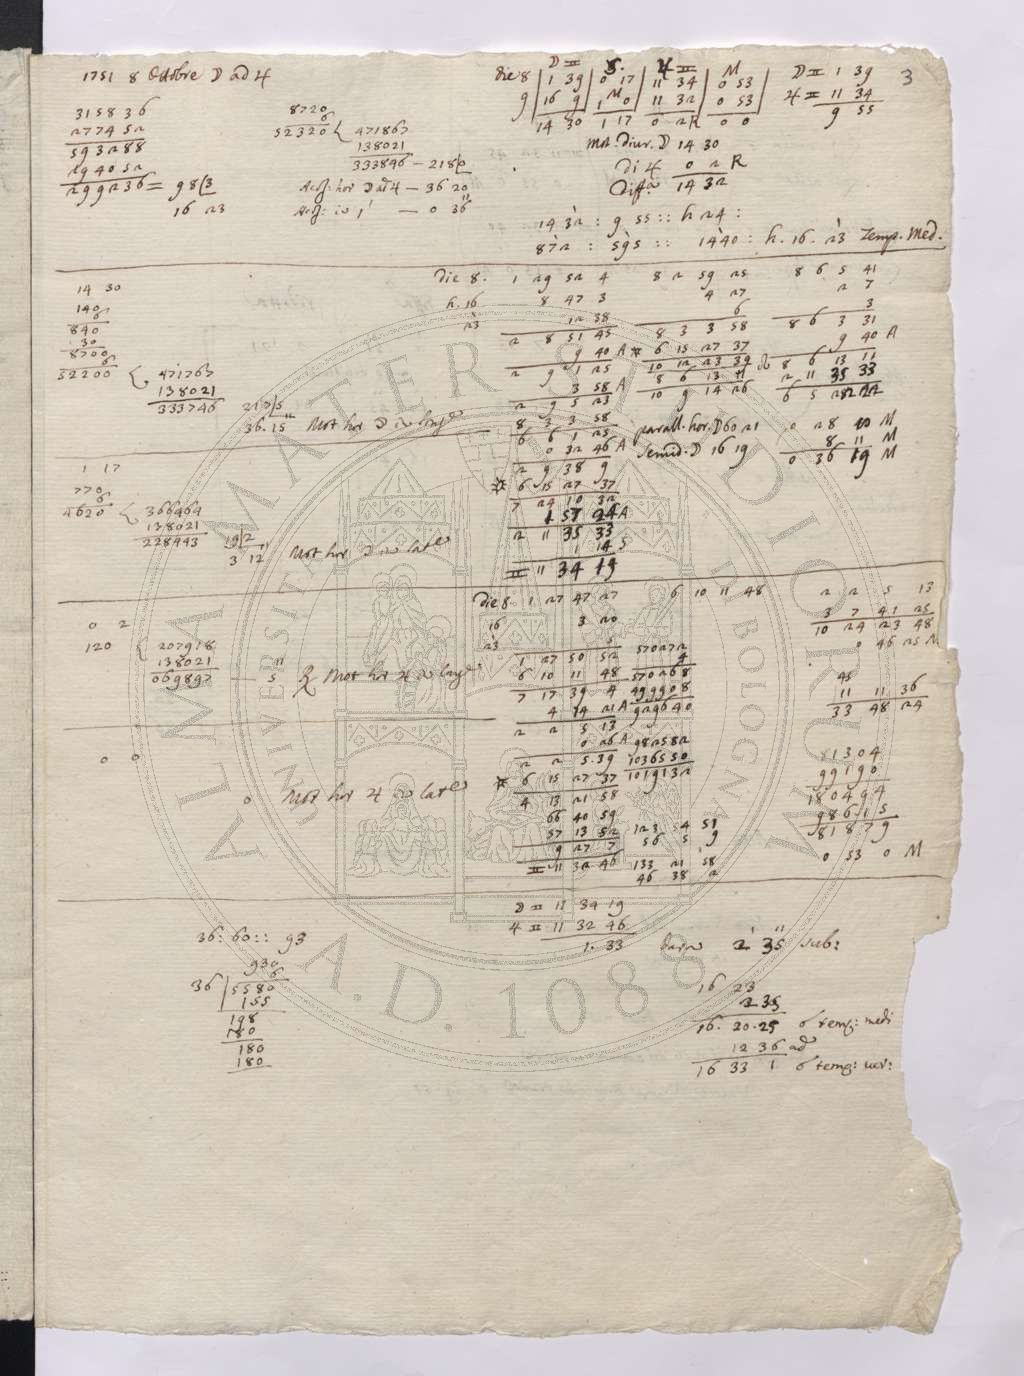 3
1751 8 Ottobre ☽ ad ♃
315836
277452
593288
294052
299236 = 98|3
16 23
8720
6
52320 { 471867
138021
333846 — 218|0
Acc: hor ☽ ad ♃ — 36 20
Acc: in 1' — 0 36''
☽ ♊ S. ♃ ♊ M
die 8 | 1 39 | 0 17 | 11 34 | 0 53 |
9 | 16 9 | 1 M 0 | 11 32 | 0 53 |
14 30 1 17 0 2 R 0 0
☽ ♊ 1 39
♃ ♊ 11 34
9 55
Mot. diur. ☽ 14 30
di ♃ 0 2 R
Diff.a 14 32
14 32 : 9 55 :: h 24 :
872 : 595 :: 1440 : h. 16. 23 Temp. Med.
14 30
140
6
840
30
8700
6
52200 { 471767
138021
333746 217|5
36. 15'' Mot hor ☽ in long.e
die 8. 1 29 52 4 8 2 59 25 8 6 5 41
h. 16 8 47 3 4 27 2 7
23 12 38 6 3
2 8 51 45 8 3 3 58 8 6 3 31
9 40 A * 6 15 27 37 9 40 A
2 9 1 25 10 12 23 39 ☊ 8 6 13 11
3 58 A 8 6 13 11 2 11 35 33
2 9 5 23 10 9 14 26 6 5 22 22
8 3 3 58 parall. hor. ☽ 60 21 0 28 10 M
6 6 1 25 Semid. ☽ 16 19 8 11 M
0 32 46 A 0 36 19 M
2 9 38 9
* 6 15 27 37
7 24 10 32
1 57 24 A
2 11 35 33
1 14 S
♊ 11 34 19
1 17
770
6
4620 { 366464
138021
228443 19|2
3 12'' Mot hor ☽ in lat.e
die 8 1 27 47 27 6 10 11 48 2 2 5 13
16 3 20 3 7 41 25
23 5 10 24 23 48
1 27 50 52 570272 0 46 25 M
6 10 11 48 570268
7 17 39 4 499908
4 14 21 A 929640
2 2 5 13
0 26 A 982582
2 2 5 39 1036550
* 6 15 27 37 1019132
4 13 21 58
66 40 59
57 13 52 123 54 51
9 27 7 56 5 9
♊ 11 32 46 133 21 58
46 38 2
45
11 11 36
33 48 24
81304
99190
180494
98615
81879
0 53 0 M
0 2
120 { 207918
138021
069897 — 5'' R Mot hor ♃ in long.e
0 0
0 Mot hor ♃ in lat.e
☽ ♊ 11 34 19
♃ ♊ 11 32 46
1. 33 2' 35'' sub:
36 : 60 :: 93
930
6
36 | 5580
155
198
180
180
180
16 23
2 35
16. 20. 25 ☌ temp: medi
12 36 ad
16 33 1 ☌ temp: ver:
ALMA MATER STUDIORUM
UNIVERSITÀ DI BOLOGNA
A.D. 1088